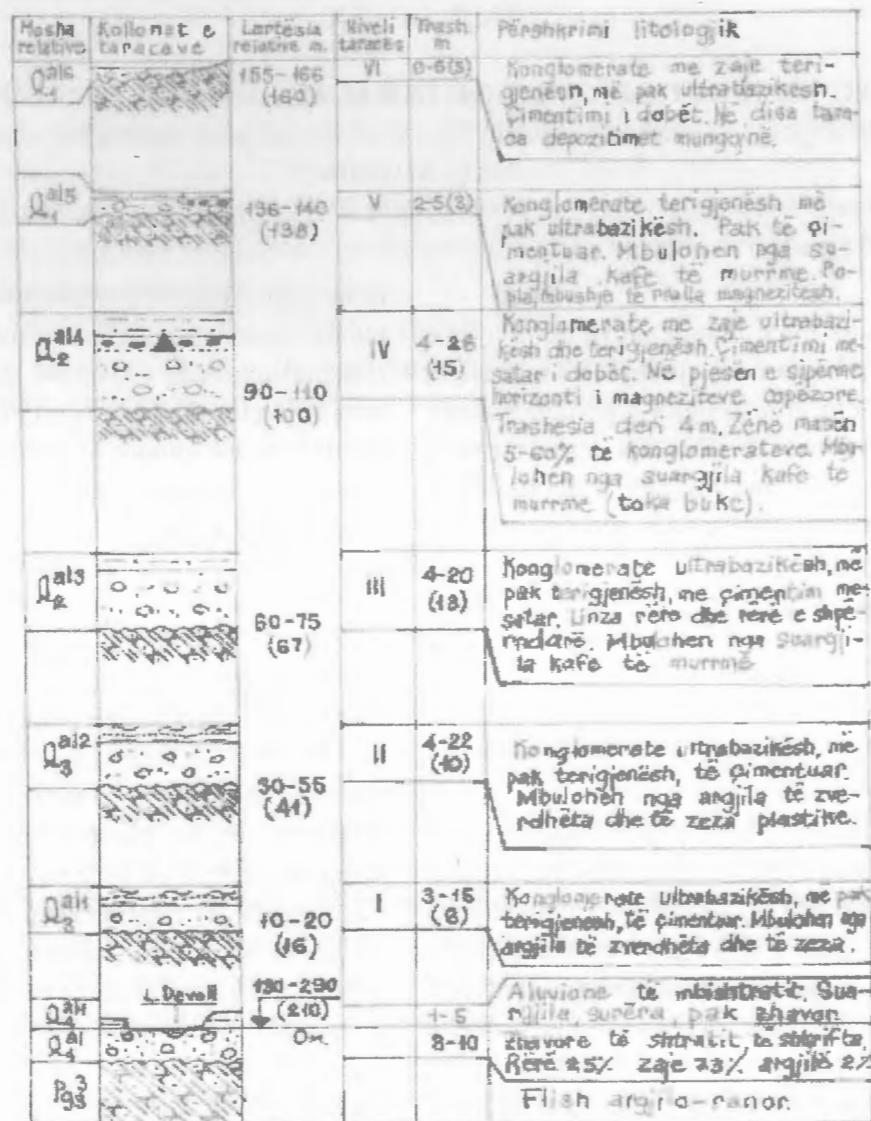 Mosha relative
Kollonat e taracave
Lartësia relative m.
Niveli taracës
Trash. m
Përshkrimi litologjik
Q₁ᵃˡ⁶
155-166
(160)
VI
0-6(3)
Konglomerate me zaje teri-
gjenësh, më pak ultrabazikësh.
Çimentimi i dobët. Në disa tara-
ca depozitimet mungojnë.
Q₁ᵃˡ⁵
136-140
(138)
V
2-5(3)
Konglomerate terigjenësh më
pak ultrabazikësh. Pak të çi-
mentuar. Mbulohen nga su-
argjila kafe të murrme. Po-
pla, mbushje të rralla magnezitesh.
Q₂ᵃˡ⁴
90-110
(100)
IV
4-26
(15)
Konglomerate me zaje ultrabazi-
kësh dhe terigjenësh. Çimentimi me-
satar i dobët. Në pjesën e sipërme
horizonti i magneziteve copëzore.
Trashësia deri 4m. Zënë masën
5-60% të konglomerateve. Mbu-
lohen nga suargjila kafe të
murrme (toka buke).
Q₂ᵃˡ³
60-75
(67)
III
4-20
(13)
Konglomerate ultrabazikësh, me
pak terigjenësh, me çimentim me-
satar. Linza rëre dhe rërë e shpë-
rndarë. Mbulohen nga suargji-
la kafe të murrmë
Q₃ᵃˡ²
30-55
(41)
II
4-22
(10)
Konglomerate ultrabazikësh, më
pak terigjenësh, të çimentuar.
Mbulohen nga argjila të zve-
rdhëta dhe të zeza plastike.
Q₃ᵃˡ¹
10-20
(16)
I
3-15
(6)
Konglomerate ultrabazikësh, më pak
terigjenësh, të çimentuar. Mbulohen nga
argjila të zverdhëta dhe të zeza.
L. Devoll
190-290
(210)
Q₄ᵃˡ¹
1-5
Aluvione të mbishtratit. Sua-
rgjila, surëra, pak zhavor
Q₄ᵃˡ
0m
8-10
Zhavore të shtratit të shkrifta.
Rërë 25% zaje 73% argjilë 2%
Pg₃³
Flish argjilo-ranor.